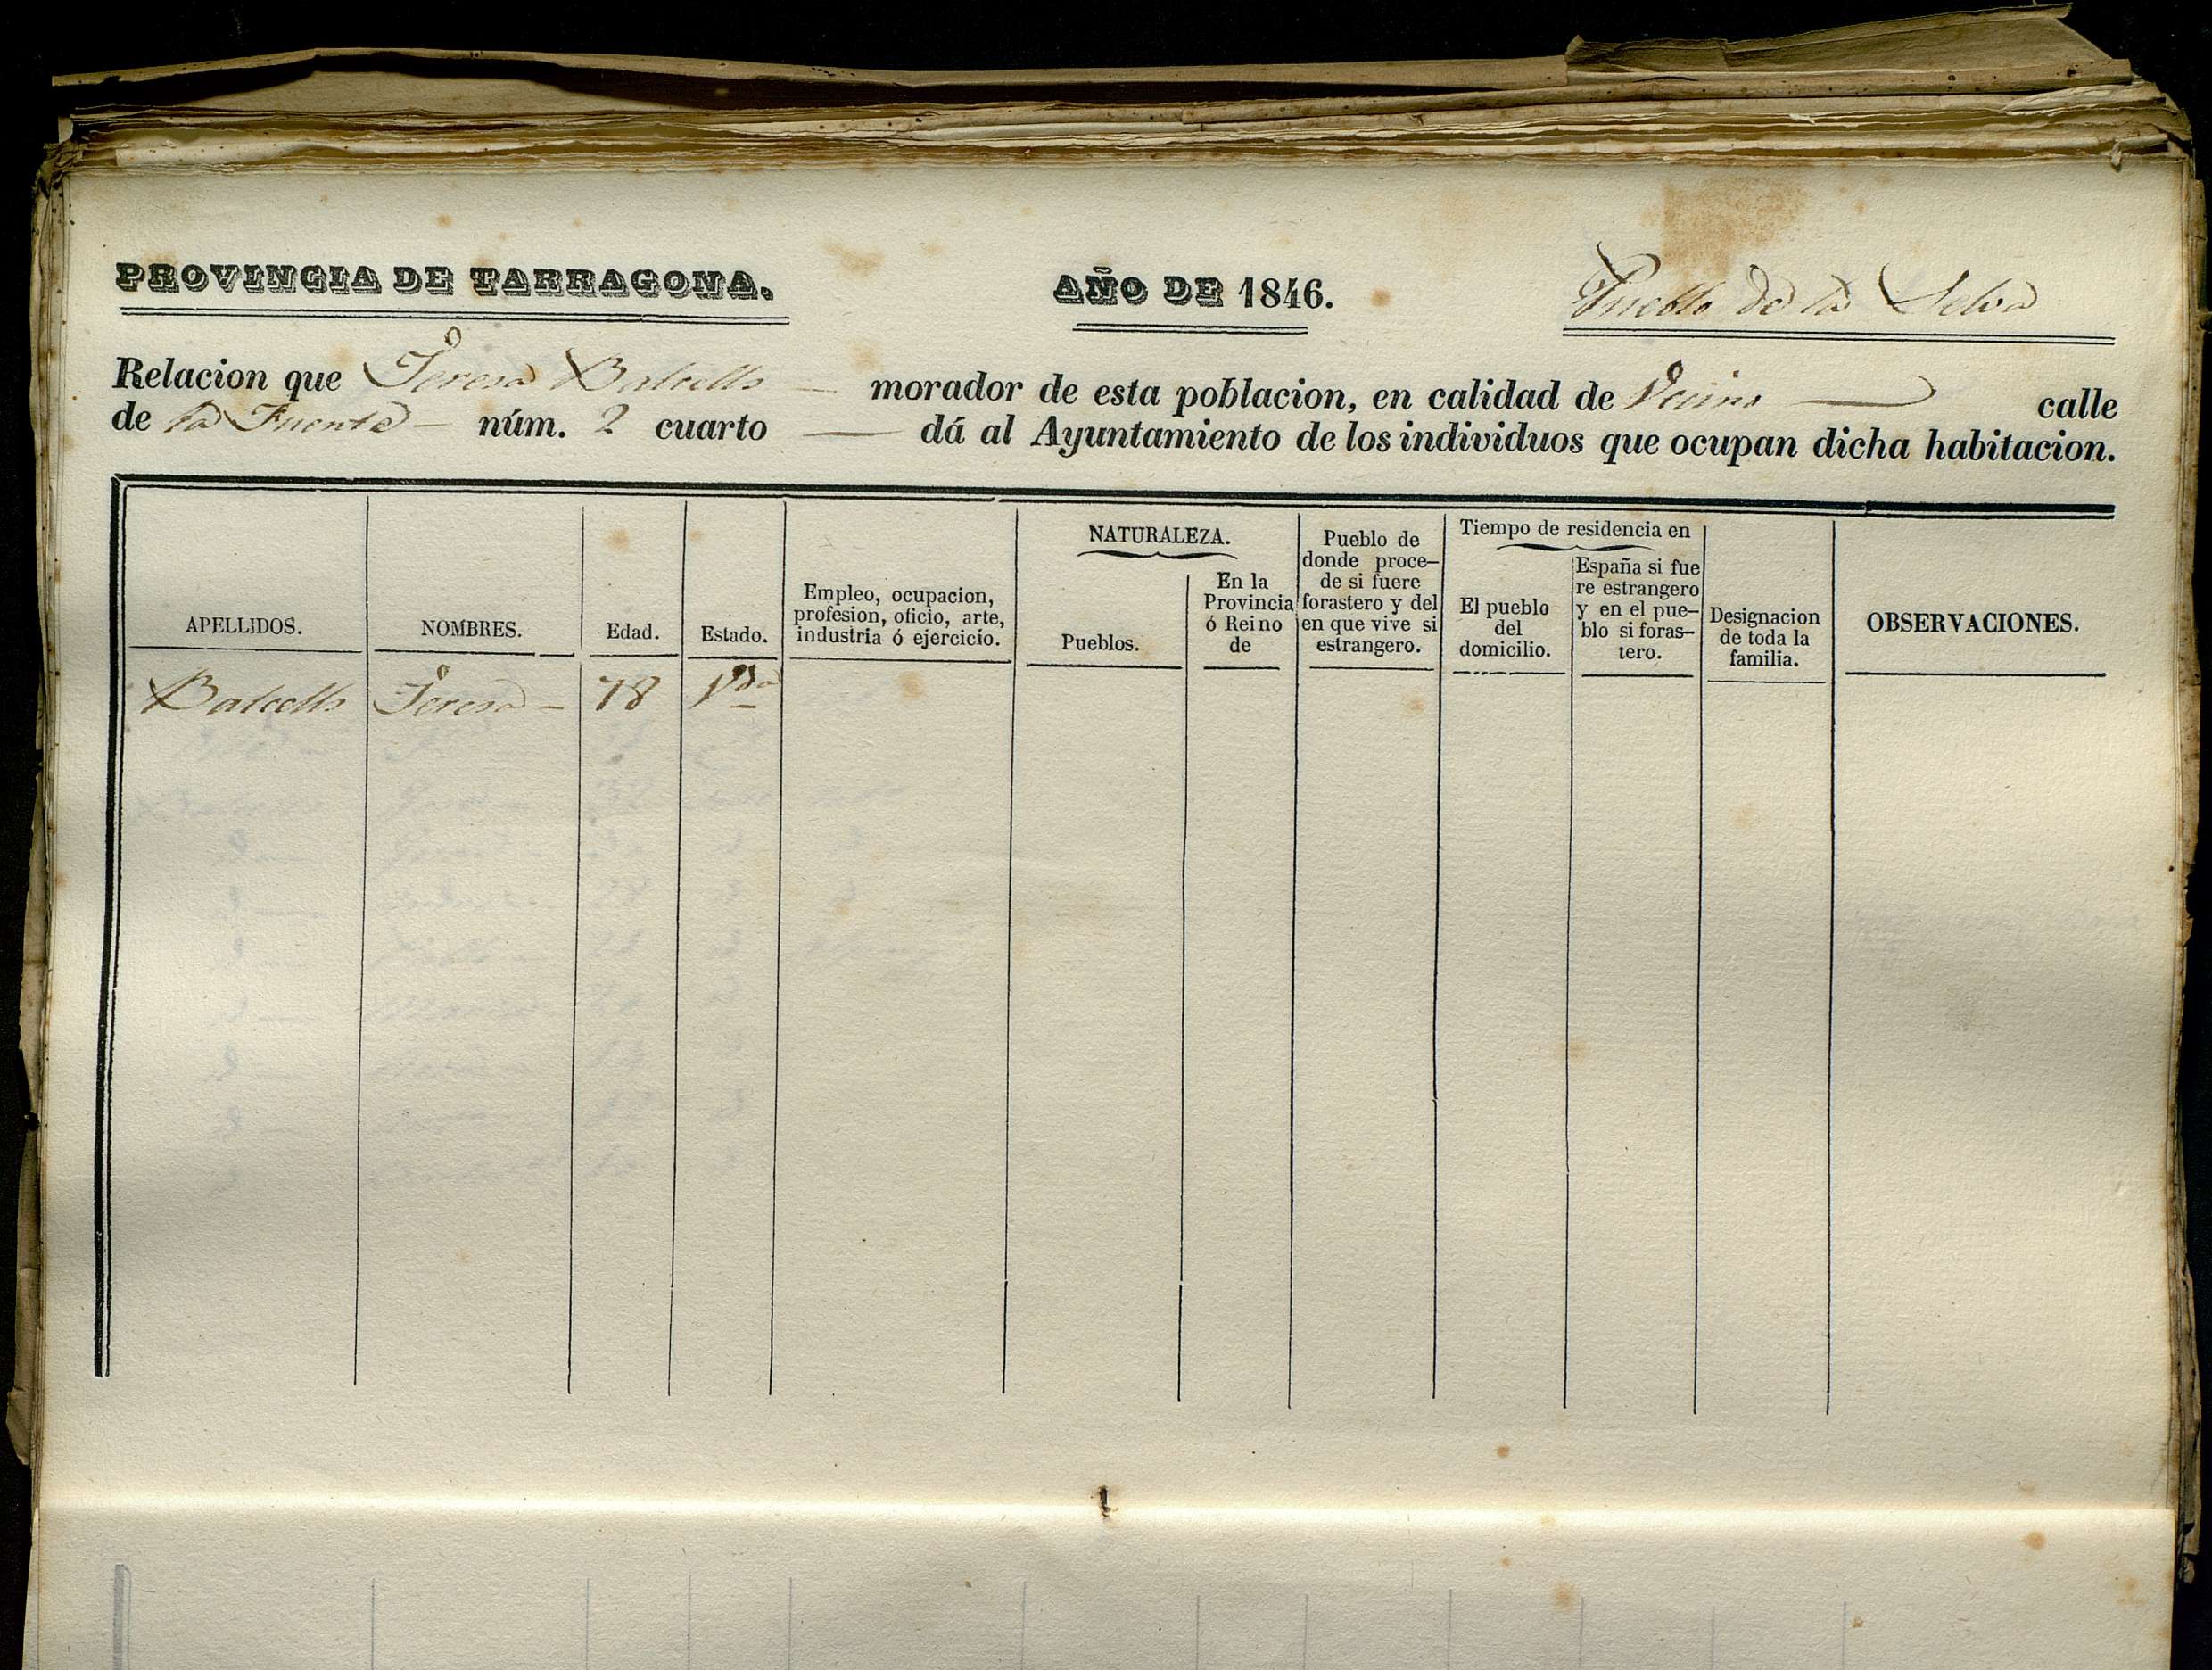 PROVINCIA DE TARRAGONA. AÑO DE 1846. Pueblo de la Selva
Relacion que Teresa Balcells — morador de esta poblacion, en calidad de Vecino — calle
de la Fuente — núm. 2 cuarto — dá al Ayuntamiento de los individuos que ocupan dicha habitacion.
APELLIDOS.
NOMBRES.
Edad.
Estado.
Empleo, ocupacion,
profesion, oficio, arte,
industria ó ejercicio.
NATURALEZA.
Pueblos.
En la
Provincia
ó Reino
de
Pueblo de
donde proce-
de si fuere
forastero y del
en que vive si
estrangero.
Tiempo de residencia en
El pueblo
del
domicilio.
España si fue
re estrangero
y en el pue-
blo si foras-
tero.
Designacion
de toda la
familia.
OBSERVACIONES.
Balcells Teresa — 78 Vda